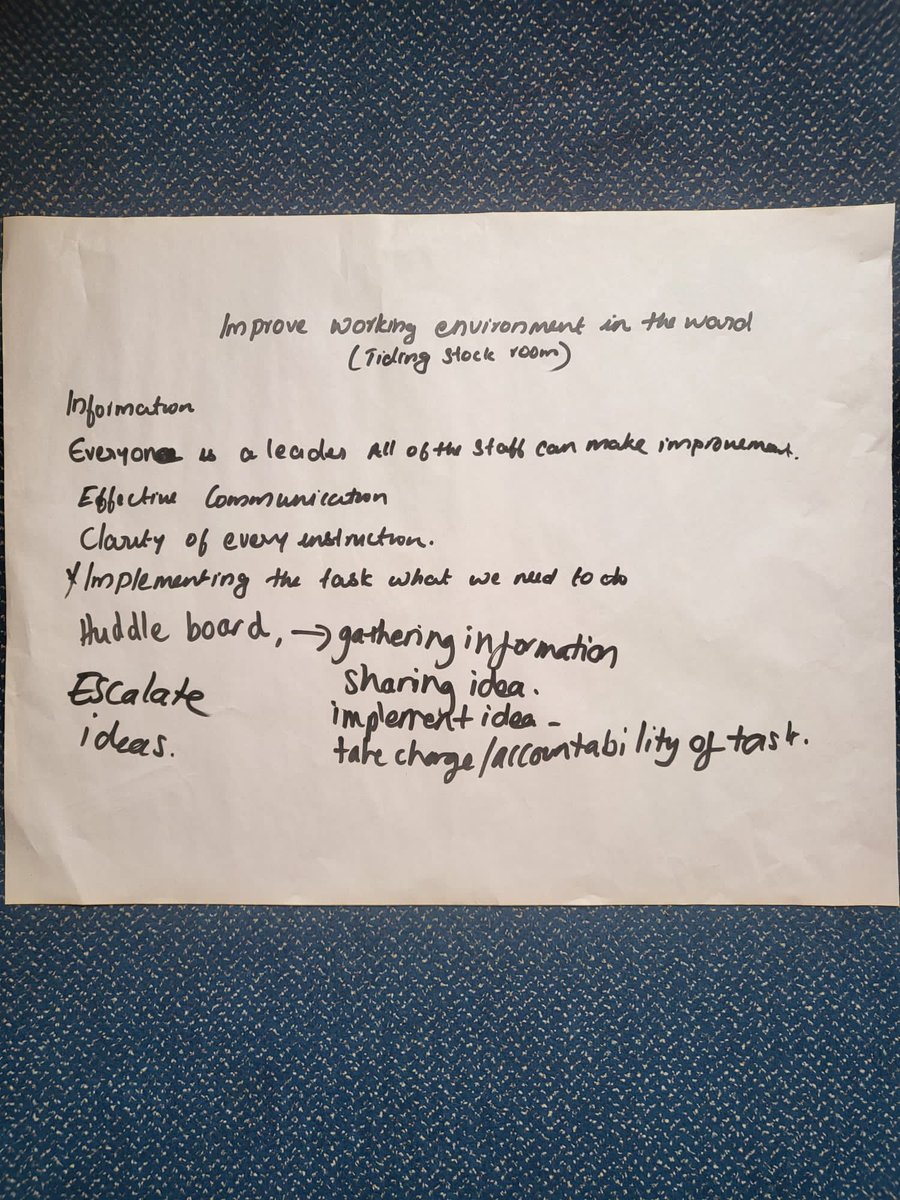 Improve working environment in the ward
(Tiding stock room)
Information
Everyone is a leader All of the staff can make improvement.
Effective Communication
Clarity of every instruction.
* Implementing the task what we need to do
Huddle board, → gathering information
sharing idea.
Escalate
implement idea -
ideas.
take charge/accountability of task.